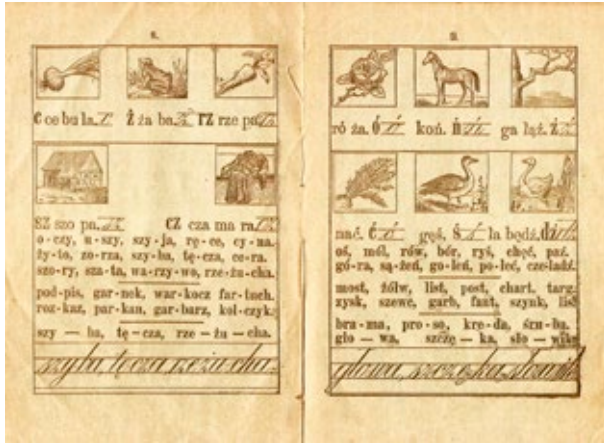 8.
C ce bu la. Ż ża ba. rz rze pa.
SZ szo pa. CZ cza ma ra.
o-czy, u-szy, szy-ja, rę-ce, cy-na.
ży-to, zo-rza, szy-ba, tę-cza, ce-ra.
szo-ry, sza-ta, wa-rzy-wo, rze-żu-cha.
pod-pis, gar-nek, war-kocz far-tuch.
roz-kaz, par-kan, gar-barz, kol-czyk.
szy — ba, tę — cza, rze — żu — cha.
szyba, tęcza rzeżucha.
9.
ró ża. Ó koń. ń ga łąź. ź
nać. ć gęś. ś la będź. dź
oś, mól, rów, bór, ryś, chęć, paź.
gó-ra, są-żeń, go-leń, po-leć, cze-ladź.
most, żółw, list, post, chart, targ.
zysk, szewc, garb, fant, szynk, liść
bra-ma, pro-so, kre-da, śru-ba.
gło — wa, szczę — ka, sło — wik
głowa, szczęka, słowik